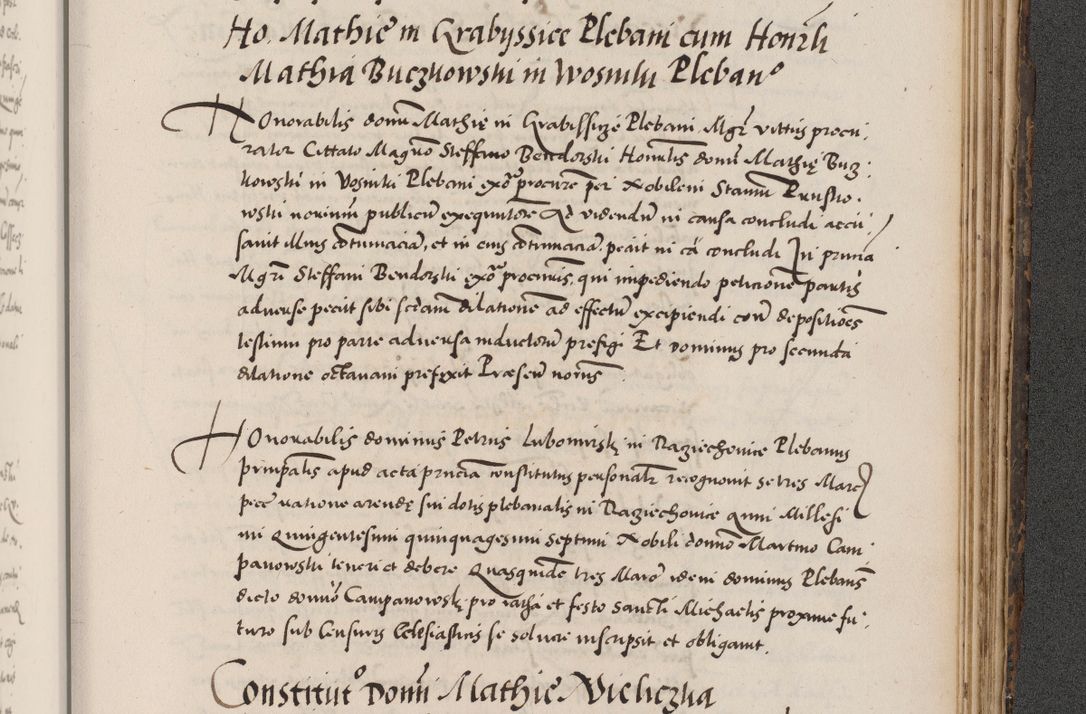 Ho. Mathie in Grabyssice Plebani cum Honrli
Mathia Buczkowski in Wosniki Plebano
Honorabilis domi Mathię in Grabissize Plebani Mgr vittus procu,
rator Cittato Magno Steffano Bendorski Honrlis domi Mathię Buc,
kowski in Vosniki Plebani exo procure per Nobilem Stanm Prusko.
wski notium publicum exequutore Ad videndum in causa concludi accu,
sauit illius cotumaciam, et in eius cotumaciam petiit in ca concludi In pruncia
Mgri Steffani Bendorski exo procuris, qui impediendo peticione partis
aduerse peciit sibi scdam dilationem ad effectum excipiendi con depositioes
testium pro parte aduersa inductorum prefigi Et dominus pro secunda
dilatione octauam prefixit Præsen notris
Honorabilis dominus Petrus Lubomirsk in Raziechovice Plebanus
principalis apud acta pruncia constitutus personalr recognouit se tres Marc
pece ratione arendę sui dotis plebanalis in Raziechovice Anni Millesi
mi Quingentesimi quinquagesimi septimi Nobili domo Martino Cam
panowski teneri et debere Quasquide tres Marc idem dominus Plebans
dicto domo Campanowsk pro ratha et festo Sancti Michaelis proxime fu,
turo sub Censuris Ecclesiasticis se soluere inscripsit et obligauit.
Constituto Domi Mathie Wieliczka